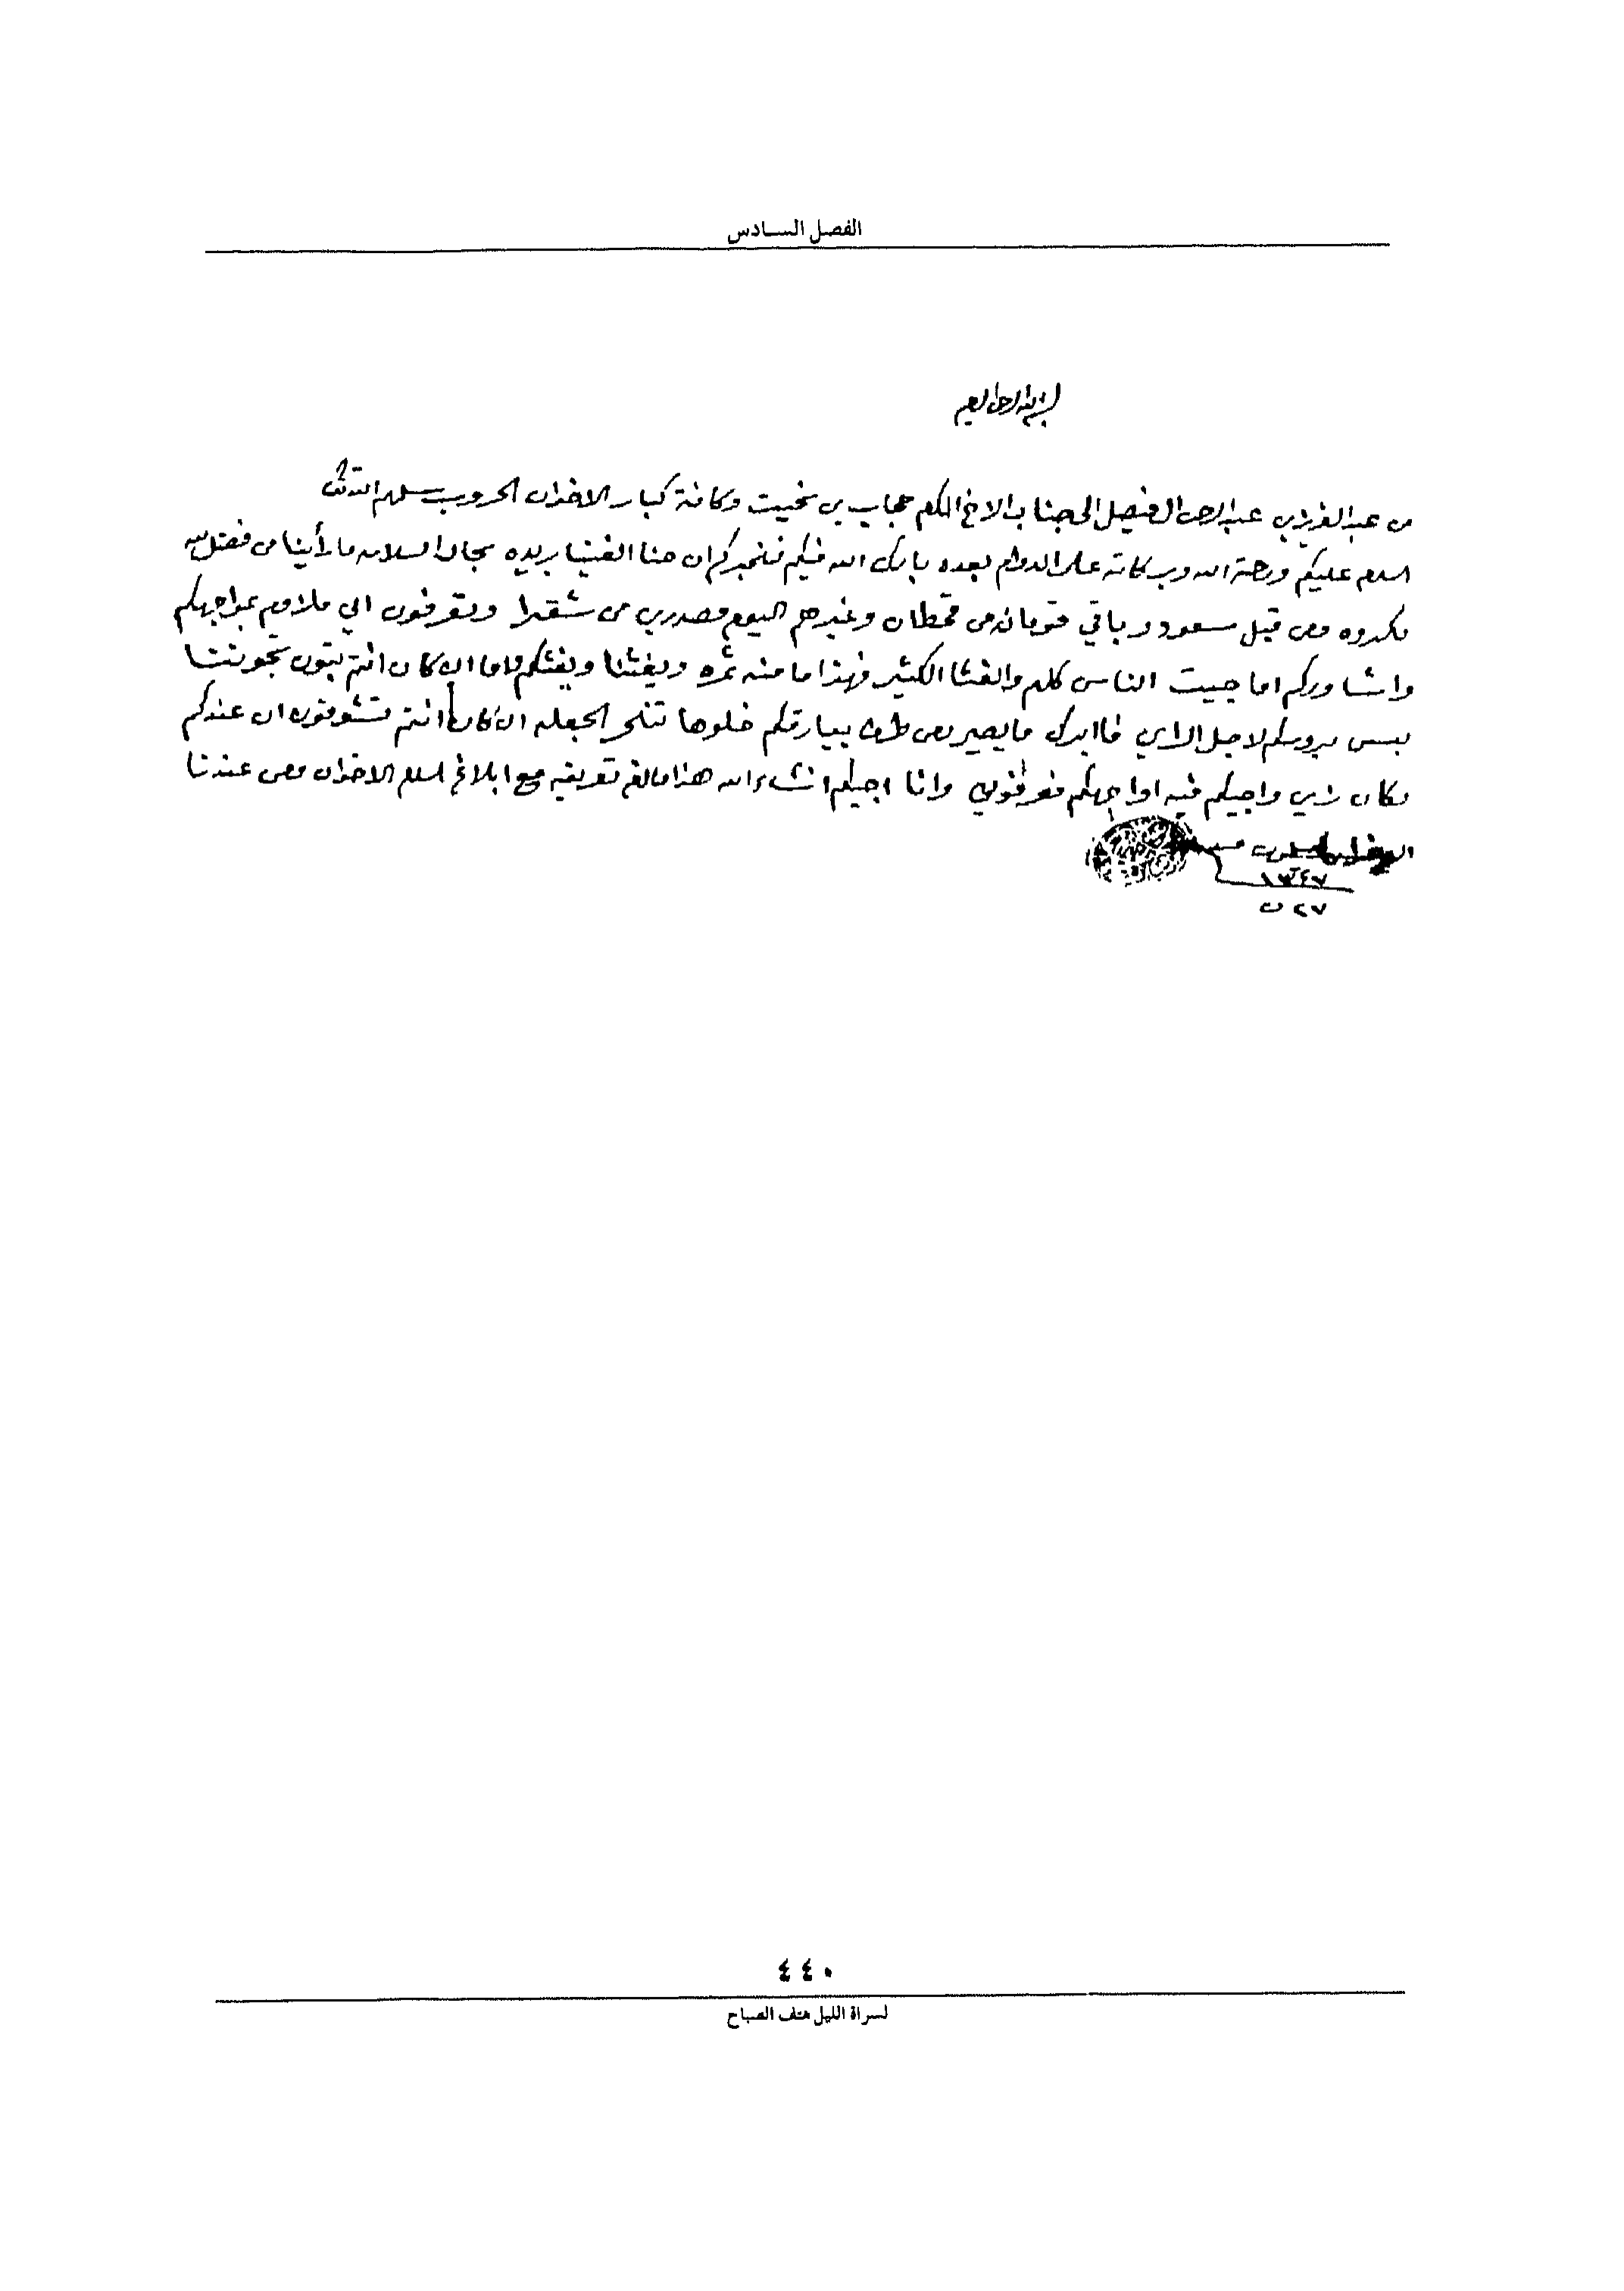 الفصل السادس
بسم الله الرحمن الرحيم
من عبد العزيز بن عبد الرحمن الفيصل الى جناب الاخ المكرم حجاب بن نحيت وكافة كبار الاخوان الحروب سلمهم الله تعالى
السلام عليكم ورحمة الله وبركاته على الدوام بعده بارك الله فيكم نخبركم ان حنا الفينا بريده بحال السلامه ما رأينا من فضل الله
مكدروه ومن قبل مسعود وباقي قومانه من قحطان وغيرهم اليوم مصدرين من شقرا وتعرفون اني ملازم بمواجهكم
واشاوركم اما جيت الناس كلهم والغثا الكثير فهذا ما منه ثمره ويغثنا ويغثكم واما ان كان انتم تجوننا
بس بروسكم لاجل الراي فاابرك ما يصير من طرف بيارقكم خلوها تنحى الجعله ان كان انتم تشوفون ان عندكم
مكان زين واجيكم فيه اواجهكم فعرفوني وانا اجيكم انشاء الله هذا ما لزم تعريفه مع ابلاغ السلام الاخوان ومن عندنا
١٣٤٧
٢٧ ن
٤٤٠
لسراة الليل هتف الصباح